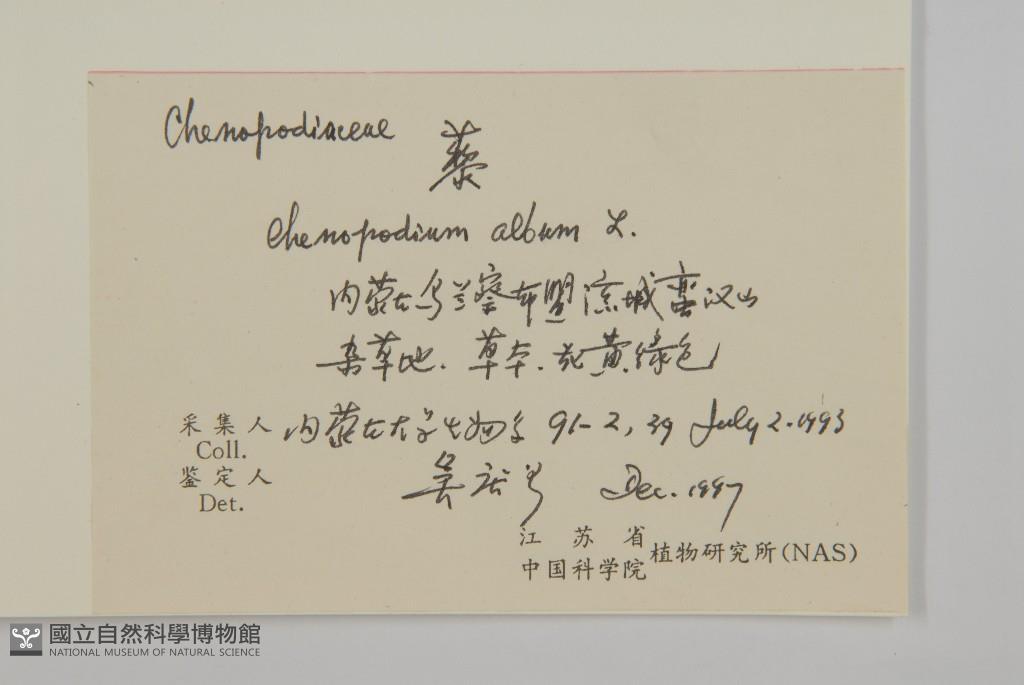 Chenopodiaceae 藜
Chenopodium album L.
内蒙古乌兰察布盟凉城蛮汉山
杂草地.草本.花黄绿色
采集人 内蒙古大学生物系 91-2, 39 July 2.1993
Coll.
鉴定人 吴 Dec.1997
Det.
江苏省
中国科学院 植物研究所(NAS)
國立自然科學博物館
NATIONAL MUSEUM OF NATURAL SCIENCE